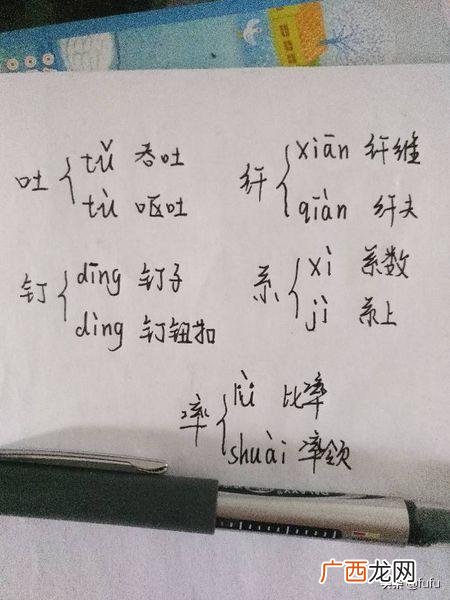 吐 tǔ 吞吐
tù 呕吐
纤 xiān 纤维
qiàn 纤夫
钉 dīng 钉子
dìng 钉钮扣
系 xì 系数
jì 系上
率 lǜ 比率
shuài 率领
广西龙网
头条 @fufu